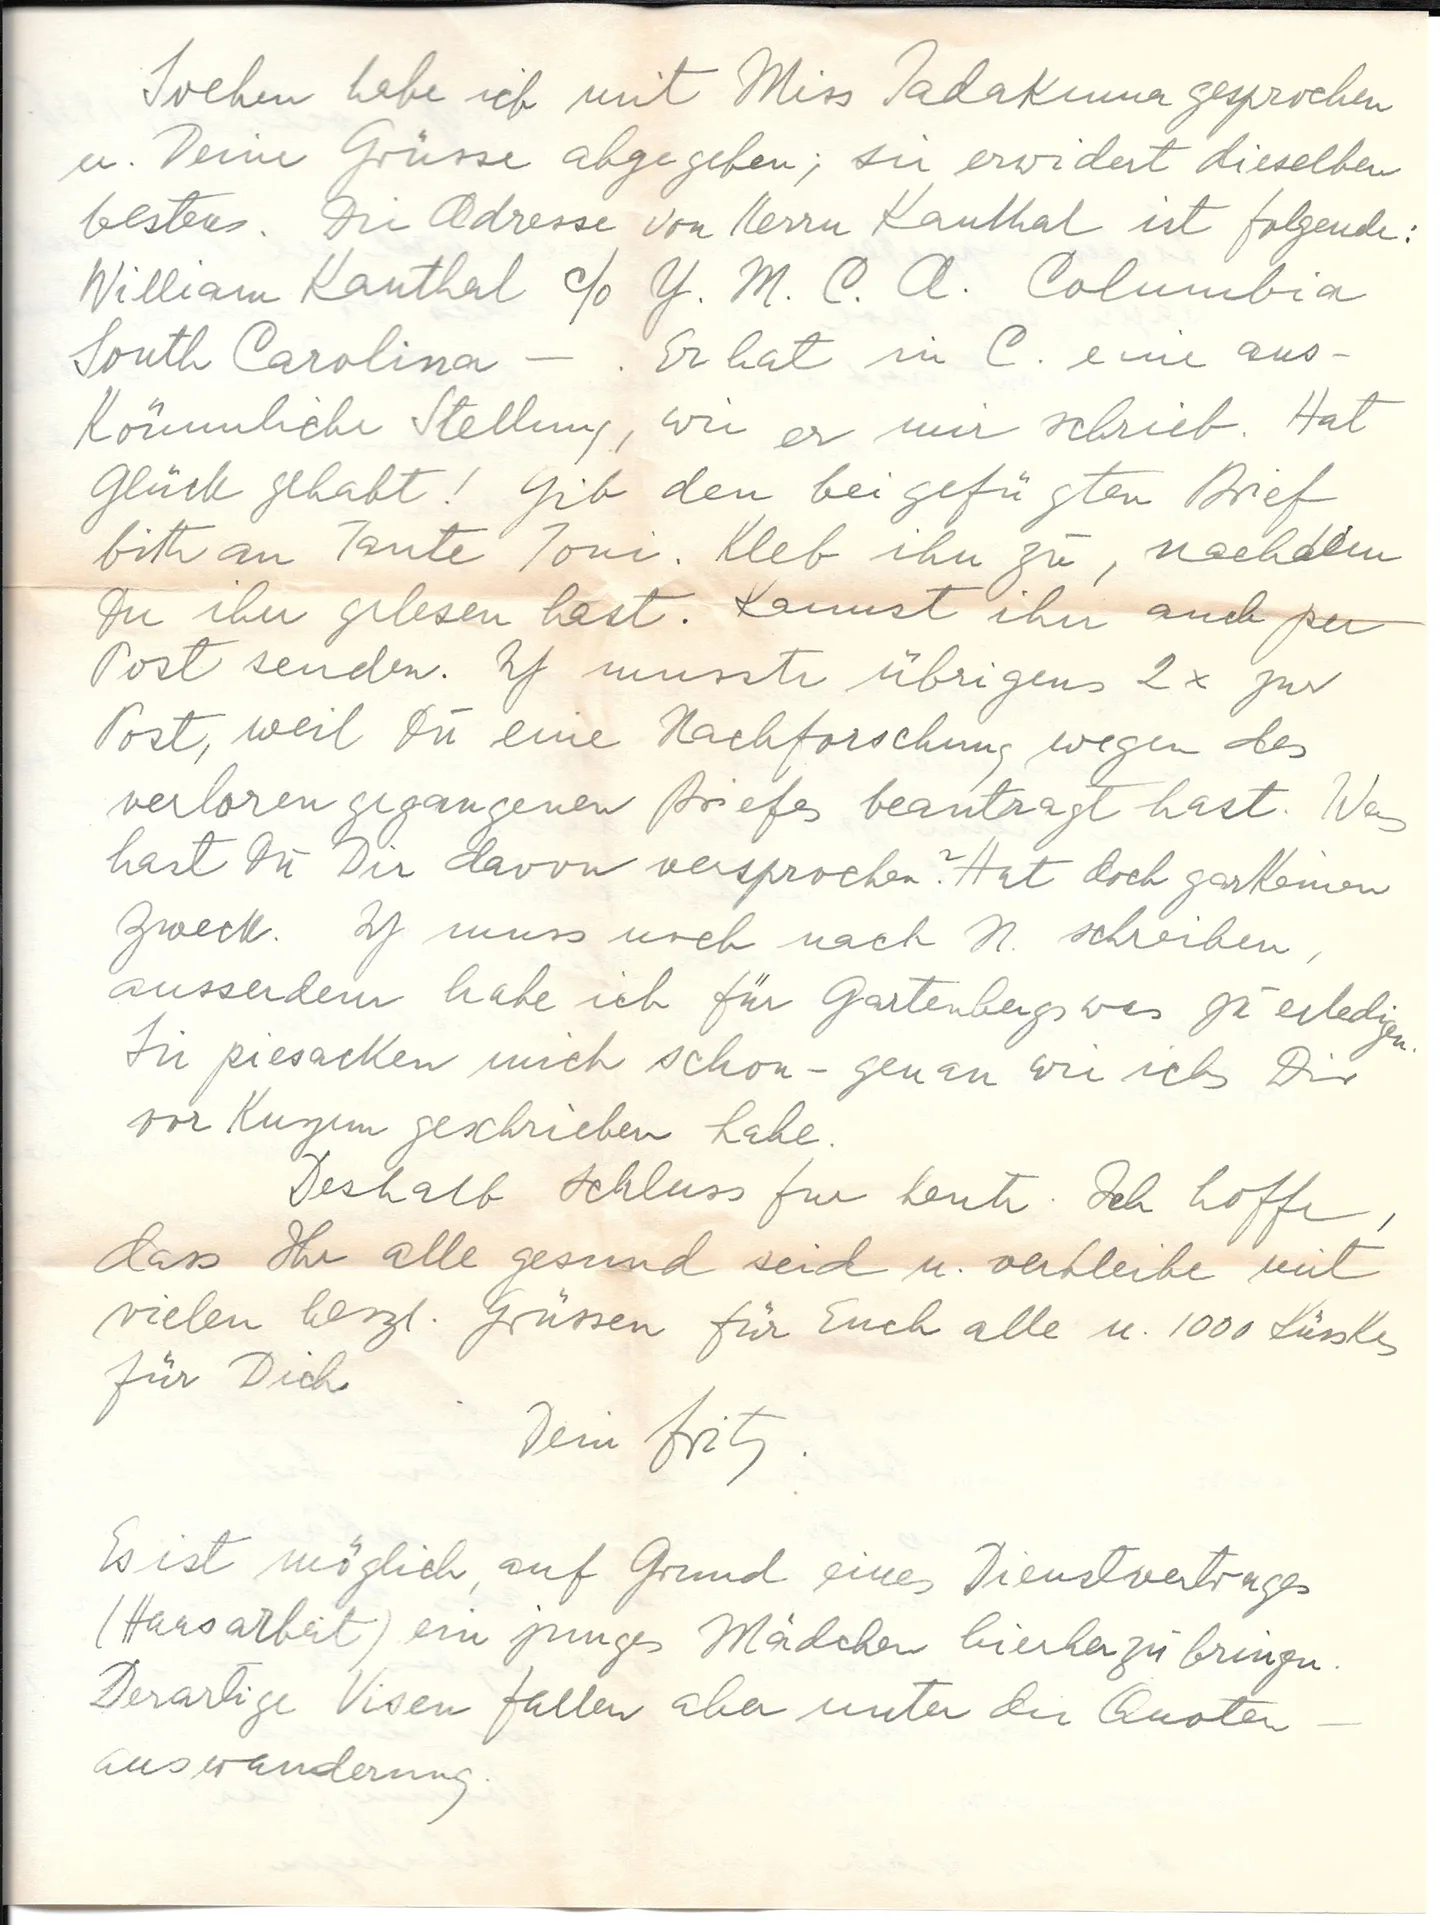 Soeben habe ich mit Miss Tadakuma gesprochen
u. Deine Grüsse abgegeben; sie erwidert dieselben
bestens. Die Adresse von Herrn Kauthal ist folgende:
William Kauthal c/o Y. M. C. A. Columbia
South Carolina — . Er hat in C. eine aus-
kömmliche Stellung, wie er mir schrieb. Hat
Glück gehabt! Gib den beigefügten Brief
bitte an Tante Toni. Kleb ihn zu, nachdem
Du ihn gelesen hast. Kannst ihn auch per
Post senden. Ich musste übrigens 2x zur
Post, weil Du eine Nachforschung wegen des
verloren gegangenen Briefes beantragt hast. Was
hast Du Dir davon versprochen? Hat doch garkeinen
Zweck. Ich muss noch nach N. schreiben,
ausserdem habe ich für Gartenbergs was zu erledigen.
Sie piesacken mich schon - genau wie ichs Dir
vor Kurzem geschrieben habe.
Deshalb Schluss für heute. Ich hoffe,
dass Ihr alle gesund seid u. verbleibe mit
vielen herzl. Grüssen für Euch alle u. 1000 Küsskes
für Dich
Dein Fritz.
Es ist möglich, auf Grund eines Dienstvertrages
(Hausarbeit) ein junges Mädchen hierher zu bringen.
Derartige Visen fallen aber unter die Quoten-
auswanderung.